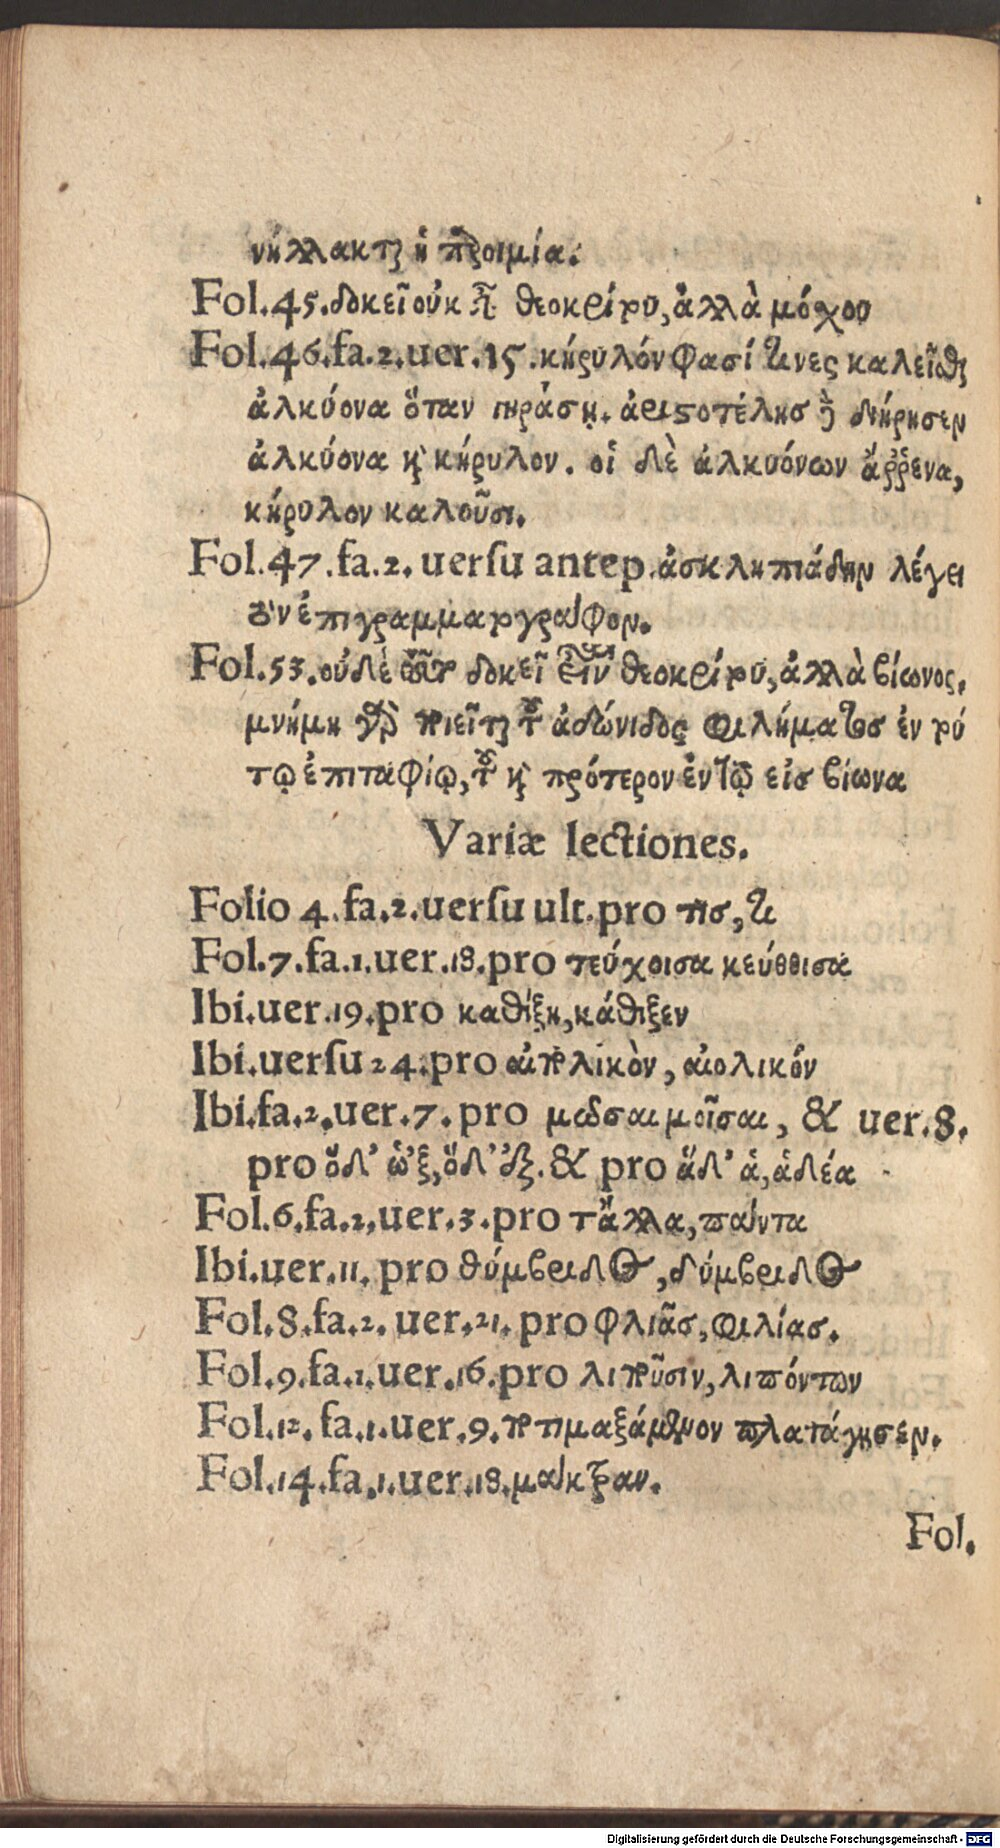 νήλλακται ἡ παροιμία.
Fol.45.δοκεῖ οὐκ εἶναι θεοκρίτου, ἀλλὰ μόχου
Fol.46.fa.2.uer.15.κήρυλόν φασί τινες καλεῖσθαι
ἀλκύονα ὅταν γηράσῃ. ἀριστοτέλησ δὲ διήρησεν
ἀλκύονα καὶ κήρυλον. οἱ δὲ ἀλκυόνων ἄῤῥενα,
κήρυλον καλοῦσι.
Fol.47.fa.2. uerſu antep.ἀσκληπιάδην λέγει
τὸν ἐπιγραμματογράφον.
Fol.53.οὐδὲ τοῦτο δοκεῖ εἶναι θεοκρίτου, ἀλλὰ βίωνος.
μνήμη γὰρ ποιεῖται τοῦ ἀδώνιδος φιλήματοσ ἐν τού
τῳ ἐπιταφίῳ, τοῦ καὶ πρότερον ἐν τῷ εἰσ βίωνα
Variæ lectiones.
Folio 4.fa.2.uerſu ult.pro τισ, τι
Fol.7.fa.1.uer.18.pro τεύχοισα κεύθοισα
Ibi.uer.19.pro καθίξη, κάθιξεν
Ibi.uerſu 24.pro αἰπολικὸν, αἰολικόν
Ibi.fa.2.uer.7. pro μῶσαι μοῖσαι, & uer.8.
pro ὅδ’ ὡ’ξ, ὅδ’ ἐξ.& pro ἅδ’ ἁ, ἁδέα
Fol.6.fa.2.uer.3.pro τἄλλα, πάντα
Ibi.uer.11. pro θύμβριδος, δύμβριδος
Fol.8.fa.2. uer.21. pro φλιᾶσ, φιλίασ.
Fol.9.fa.1.uer.16.pro λιποῦσιν, λιπόντων
Fol.12. fa.1.uer.9. ποτιμαξάμενον πλατάγησεν.
Fol.14.fa.1.uer.18.μάκτραν.
Fol.
Digitalisierung gefördert durch die Deutsche Forschungsgemeinschaft - DFG